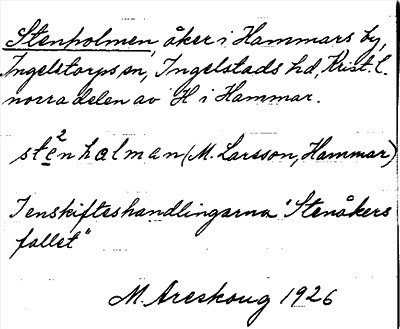 Stenholmen, åker i Hammars by,
Ingelstorps sn, Ingelstads hd, Krist. l.
norra delen av H i Hammar.
stḙ̄²nhalman (M. Larsson, Hammar)
I enskifteshandlingarna "Stenåkers
fallet"
M. Areskoug 1926